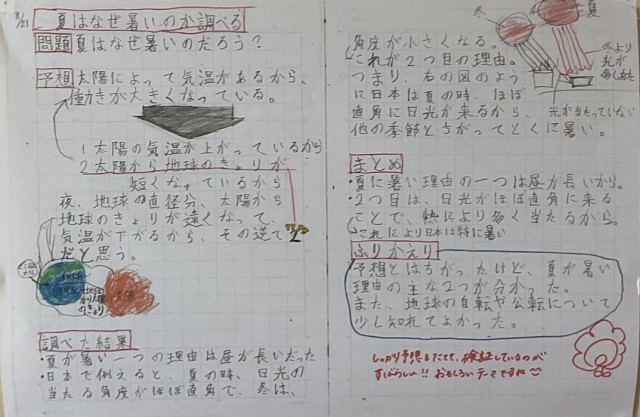 8/21
夏はなぜ暑いのか調べる
問題 夏はなぜ暑いのだろう?
予想 太陽によって気温があるから、
働きが大きくなっている。
1太陽の気温が上がっているから
2太陽から地球のきょりが
短くなっているから
夜、地球の直径分、太陽から
地球のきょりが遠くなって、
気温が下がるから、その逆で
2
だと思う。
調べた結果
・夏が暑い一つの理由は昼が長いだった
・日本で例えると、夏の時、日光の
当たる角度がほぼ直角で、冬は、
角度が小さくなる。
これが2つ目の理由。
つまり、右の図のよう
に日本は夏の時、ほぼ
直角に日光が来るから、
他の季節とちがってとくに暑い。
冬
夏
冬より
光が
多く
光が当たっていない
まとめ
・夏に暑い理由の一つは昼が長いから。
・2つ目は、日光がほぼ直角に来る
ことで、熱により多く当たるから。
これにより日本は特に暑い
ふりかえり
予想とはちがったけど、夏が暑い
理由の主な2つが分かった。
また、地球の自転や公転について
少し知れてよかった。
しっかり予想をたてて、検証しているのが
すばらしい!!おもしろいテーマですね